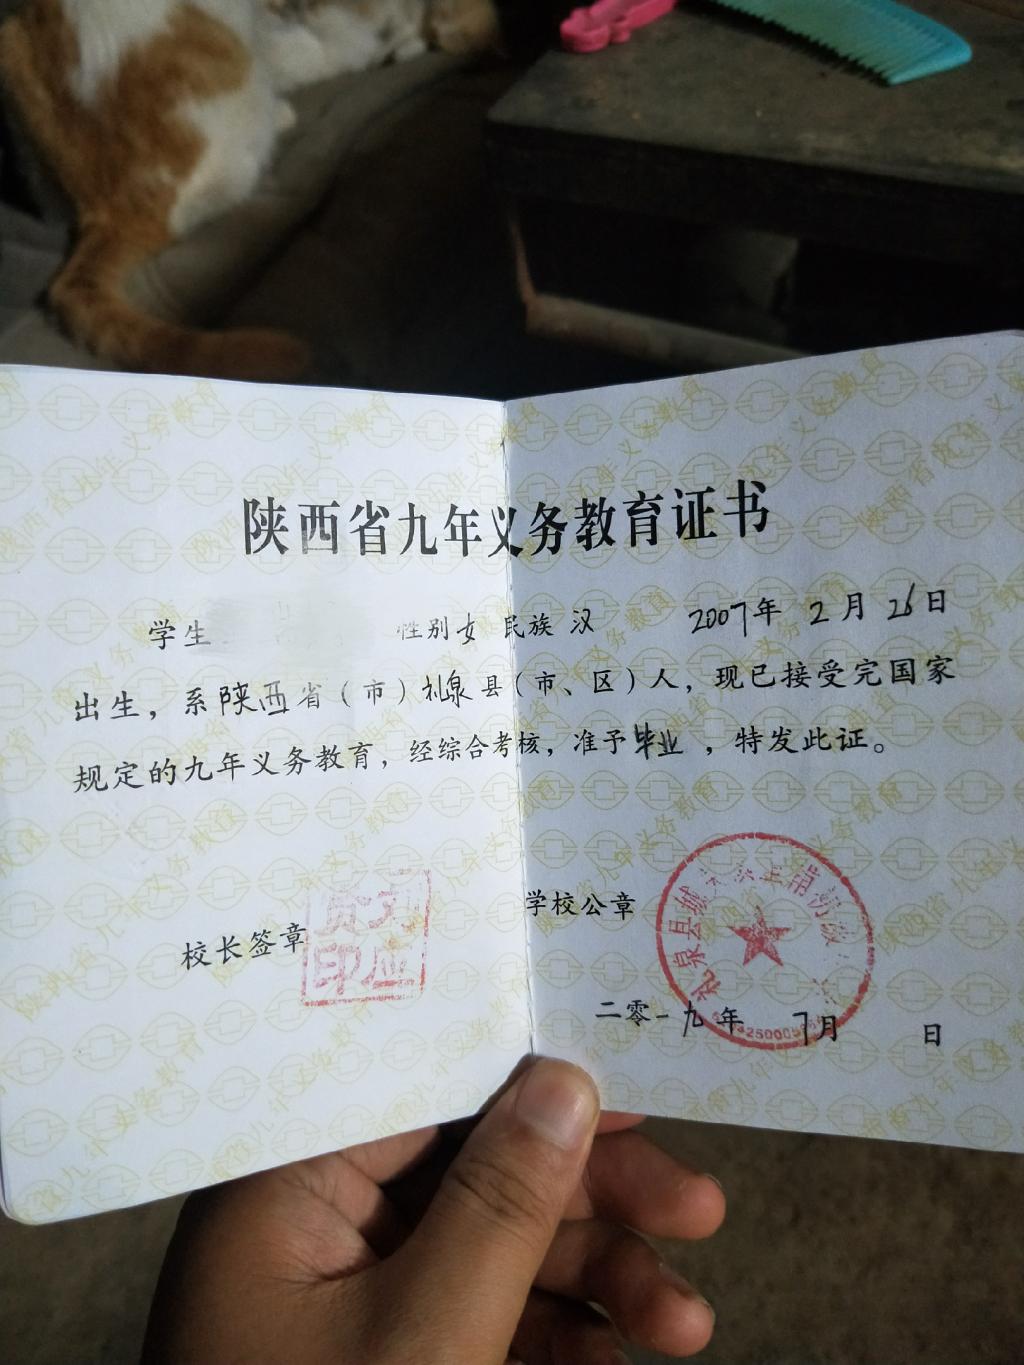 陕西省九年义务教育证书
学生 性别女 民族 汉 2007年 2月 26日
出生，系陕西省（市）礼泉县（市、区）人，现已接受完国家
规定的九年义务教育，经综合考核，准予毕业，特发此证。
校长签章
学校公章
礼泉县城
二零一九年 7月 日